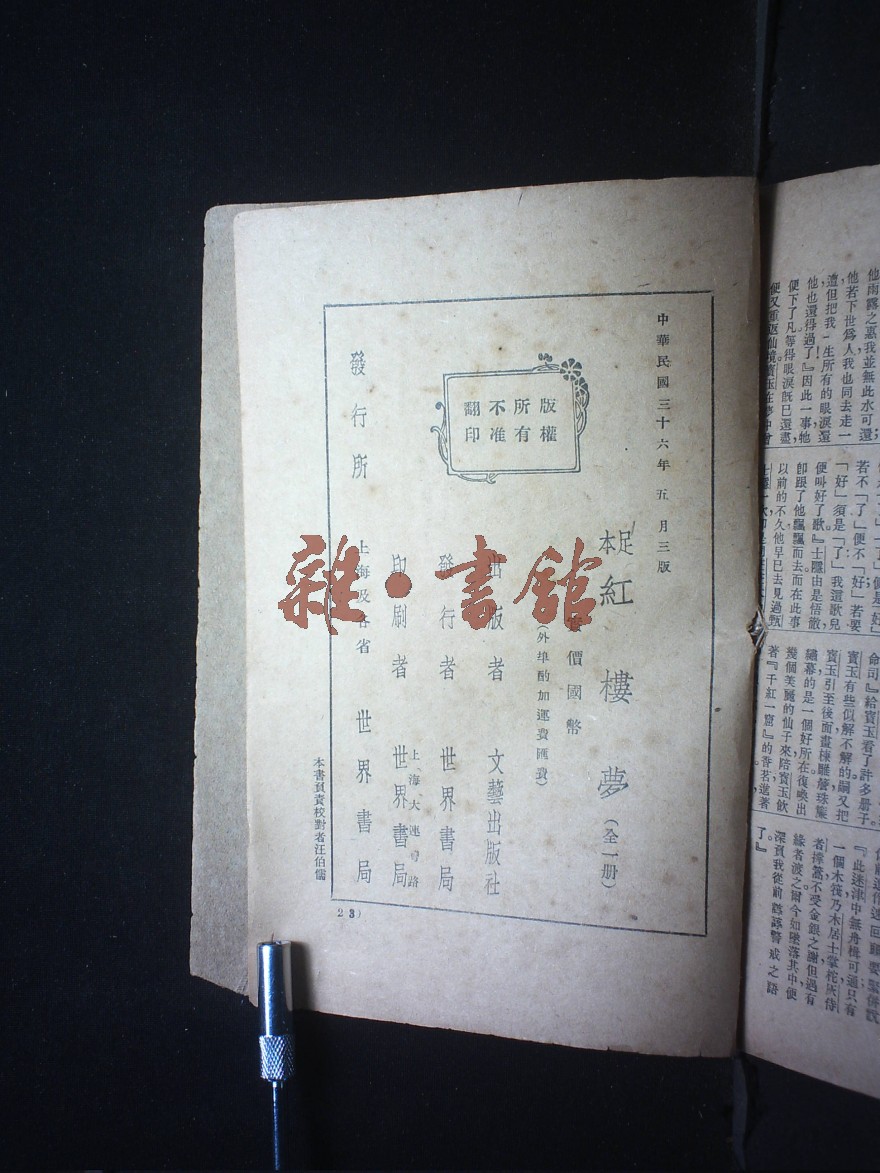 中華民國三十六年五月三版
足本紅樓夢(全一册)
價國幣
(外埠酌加運費匯費)
版權
所有
不准
翻印
出版者 文藝出版社
發行者 世界書局
印刷者 世界書局
上海大連
路
發行所 上海及各省 世界書局
本書負責校對者汪伯儒
23)
雜·書館
他雨露之惠我並無此水可還,
他若下世爲人我也同去走一
遭但把我一生所有的眼淚還
他也還得過了』因此一事他
便下了凡等得眼淚旣已還盡
若不「了」便不「好」若要
「好」須是「了」我這歌兒
便叫好了歌』士隱由是悟徹
卽跟了他飄飄而去而在此事
以前的不久他早已去見過甄
命司』給寶玉看了許多册子。
寶玉有些似解不解的嗣又把
寶玉引至後面畫棟雕簷珠簾
繡幕的是一個好所在復喚出
幾個美麗的仙子來陪寶玉飲
著『千紅一窟』的香茗進著
『此迷津中無舟楫可通只有
一個木筏乃木居士掌柁灰侍
者撑篙不受金銀之謝但遇有
緣者渡之爾今如墜落其中便
深負我從前諄諄警戒之語
了。』